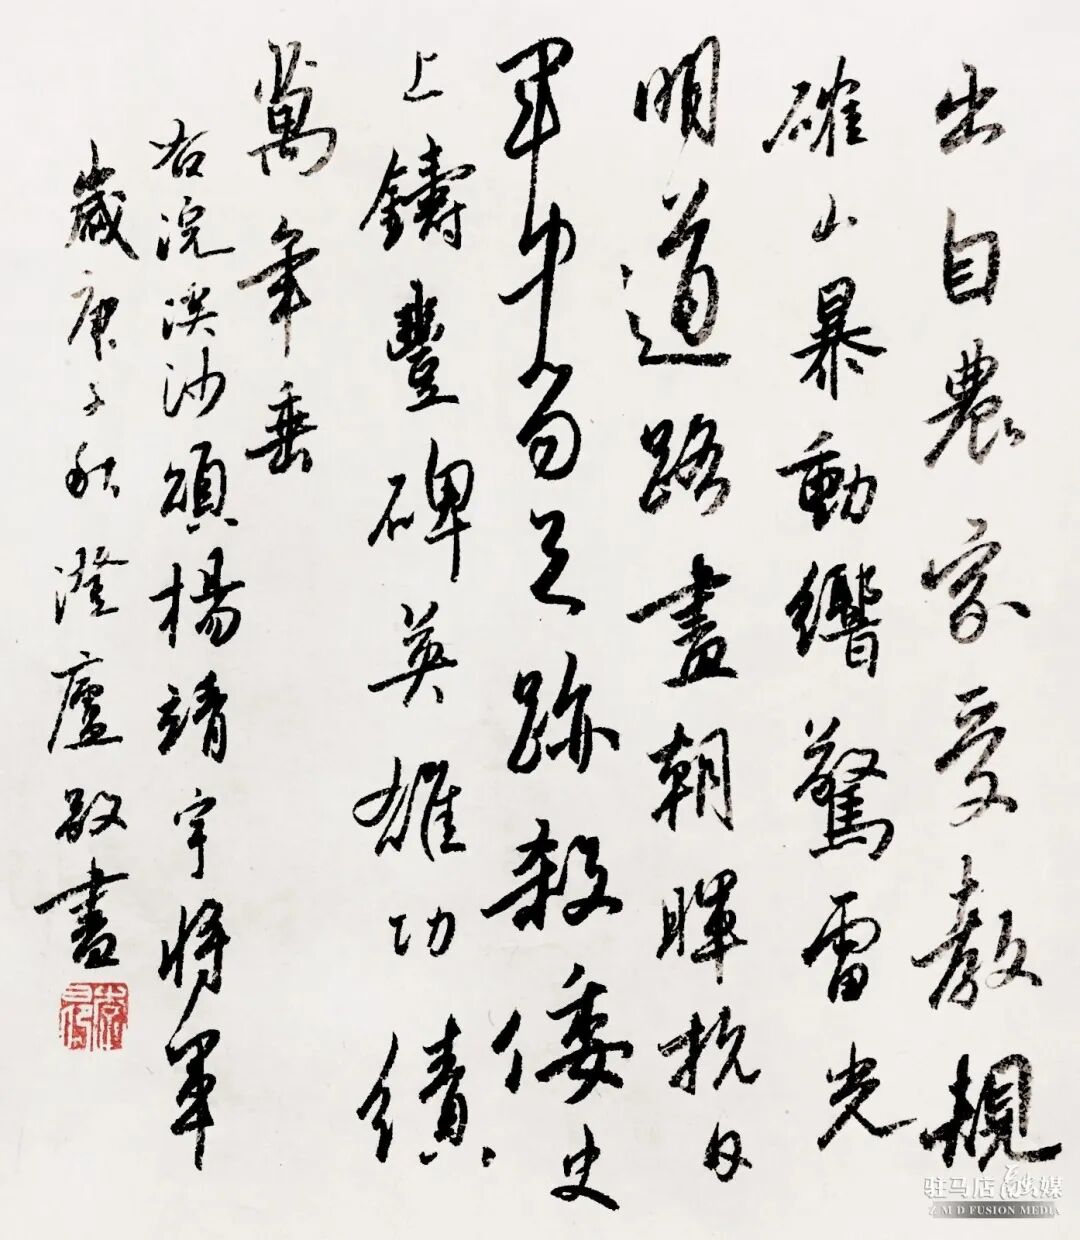 出自農家受教規
確山暴動響驚雷光
明道路盡朝暉抗日
軍中留足跡殺倭史
上鑄豐碑英雄功績
萬年垂
右浣溪沙頌楊靖宇將軍
歲庚子秋澄廬敬書
驻马店融媒
ZMD FUSION MEDIA